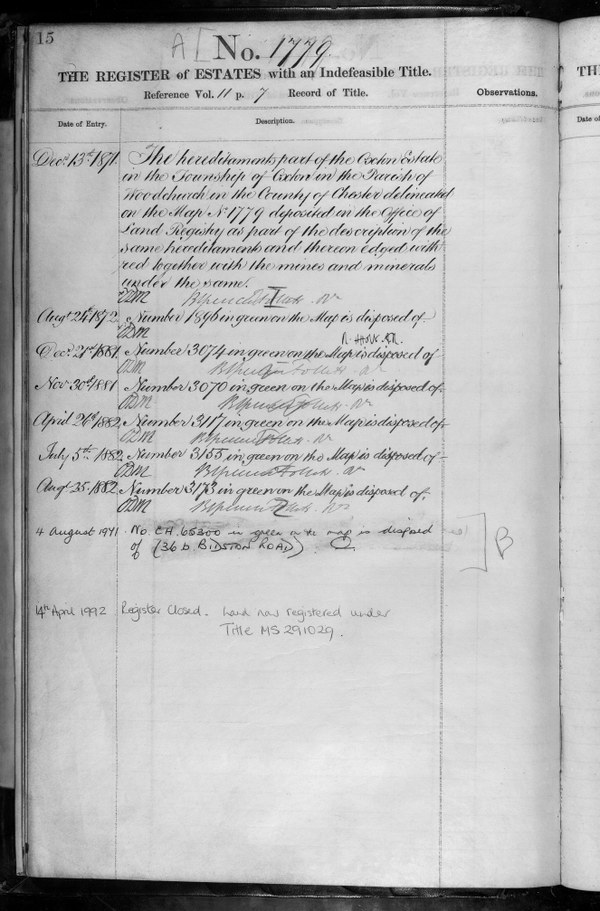 15
A [ No. 1779.
THE REGISTER of ESTATES with an Indefeasible Title.
Reference Vol. 11 p. 7 Record of Title.
Observations.
Date of Entry.
Description.
Decr. 13th 1871. The hereditaments part of the Oxton Estate
in the Township of Oxton in the Parish of
Woodchurch in the County of Chester delineated
on the Map No. 1779 deposited in the Office of
Land Registry as part of the description of the
same hereditaments and thereon edged with
red together with the mines and minerals
under the same.
Augt 24th 1872. Number 1896 in green on the Map is disposed of.
Decr. 21st 1881. Number 3074 in green on the Map is disposed of
Nov 30th 1881 Number 3070 in green on the Map is disposed of.
April 26th 1882, Number 3117 in green on the Map is disposed of.
July 5th 1882 Number 3155 in green on the Map is disposed of
Augt 25. 1882. Number 3173 in green on the Map is disposed of.
4 August 1971 No. CH. 65300 in green on the map is disposed
of (36b BIDSTON ROAD)
B
14th April 1992 Register Closed. Land now registered under
Title MS 291029.
TH
Date of